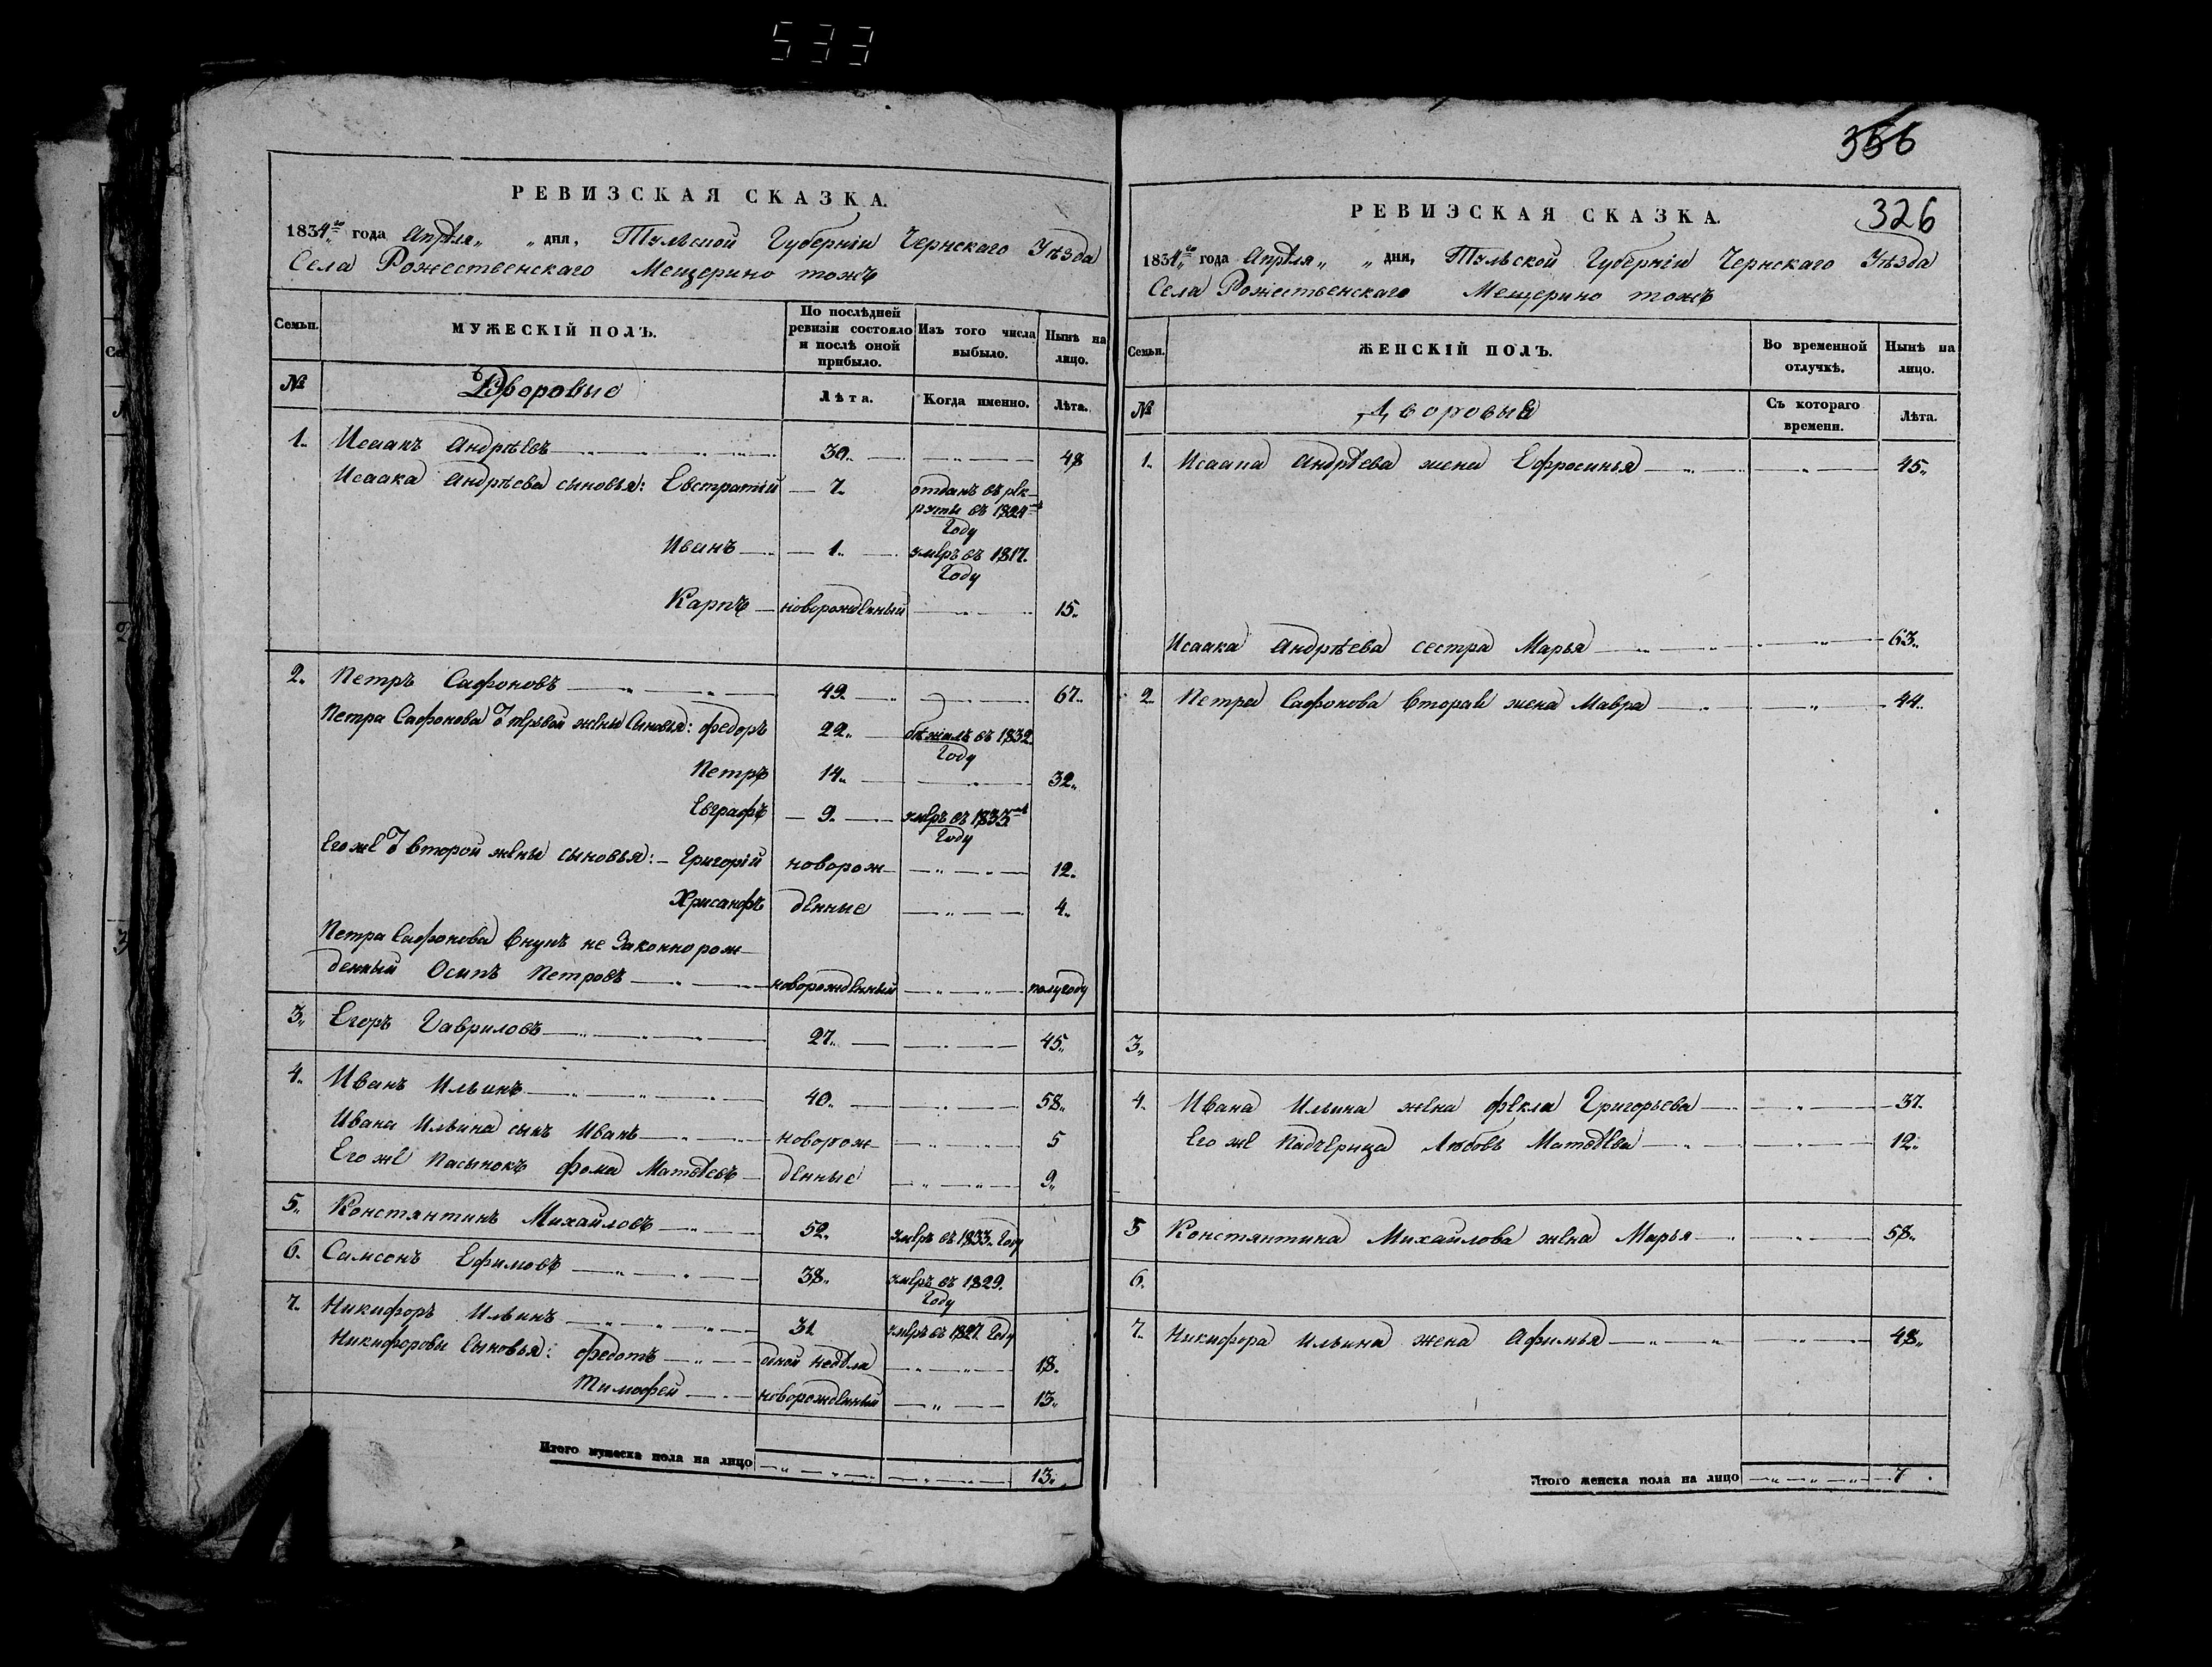 533
РЕВИЗСКАЯ СКАЗКА.
1834го года Апрѣля „ „ дня, Тульской Губерніи Чернскаго Уѣзда
Села Рожественскаго Мещерино тожъ
Семьи. МУЖЕСКІЙ ПОЛЪ. По послѣдней ревизіи состояло и послѣ оной прибыло. Изъ того числа выбыло. Нынѣ на лицо.
№ Дворовые Лѣта. Когда именно. Лѣта.
1. Исаакъ Андрѣевъ 30. 48
Исаака Андрѣева сыновья: Евстратій 7. отданъ въ рек-
руты въ 1824мъ
Году
Иванъ 1. умеръ въ 1817.
Году
Карпъ новорожденный 15.
2. Петръ Сафоновъ 49. 67.
Петра Сафонова Ѿ первой жены Сыновья: Федоръ 22. бѣжалъ въ 1832.
Году
Петръ 14. 32.
Евграфъ 9. умеръ въ 1833мъ
Году
Его же Ѿ второй жены сыновья: Григорій новорож- 12.
Хрисанфъ денные 4.
Петра Сафонова Внукъ не Законнорож-
денный Осипъ Петровъ новорожденный полугоду
3. Егоръ Гавриловъ 27. 45.
4. Иванъ Ильинъ 40. 58.
Ивана Ильина сынъ Иванъ новорож- 5
Его же Пасынокъ Фома Матвѣевъ денные 9.
5. Констянтинъ Михайловъ 52. умеръ въ 1833. Году
6. Самсонъ Ефимовъ 38. умеръ въ 1829.
Году
7. Никифоръ Ильинъ 31 умеръ въ 1827. Году
Никифоровы Сыновья: Федотъ одной недѣли 18.
Тимофей новорожденный 13.
Итого мужеска пола на лицо 13.
356
326
РЕВИЗСКАЯ СКАЗКА.
1834го года Апрѣля „ „ дня, Тульской Губерніи Чернскаго Уѣзда
Села Рожественскаго Мещерино тожъ
Семьи. ЖЕНСКІЙ ПОЛЪ. Во временной отлучкѣ. Нынѣ на лицо.
№ Дворовыя Съ котораго времени. Лѣта.
1. Исаака Андрѣева жена Ефросинья 45.
Исаака Андрѣева сестра Марья 63.
2. Петра Сафонова Вторая жена Мавра 44.
3.
4. Ивана Ильина жена Фекла Григорьева 37.
Его же Падчерица Любовь Матвѣева 12.
5 Констянтина Михайлова жена Марья 58.
6.
7. Никифора Ильина жена Афимья 48.
Итого женска пола на лицо 7